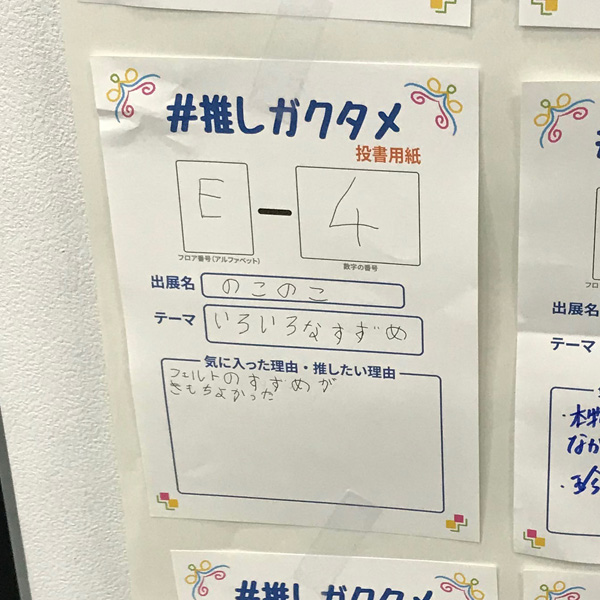 #推しガクタメ
投書用紙
E - 4
フロア番号(アルファベット)
数字の番号
出展名 のこのこ
テーマ いろいろなすずめ
気に入った理由・推したい理由
フェルトのすずめが
きもちよかった
出展名
テーマ
なか
#推しガクタメ